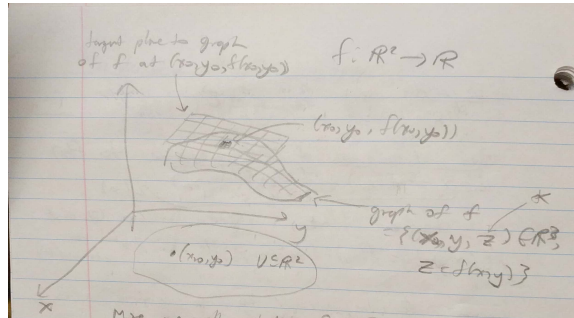 tangent plane to graph
of f at (x₀,y₀,f(x₀,y₀))
f: ℝ² → ℝ
(x₀,y₀, f(x₀,y₀))
graph of f
= {(x, y, z) ∈ ℝ³,
z = f(x,y)}
y
(x₀,y₀) U⊆ℝ²
x